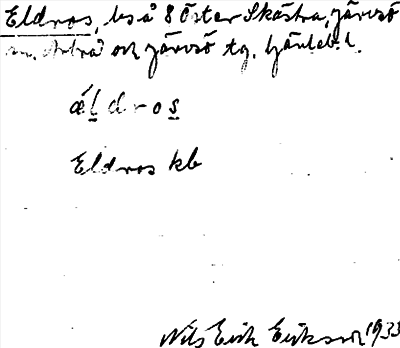 Eldros, ls å 8 Öster Skästra, Järvsö
sn. Arbrå och Järvsö tg. Gävleb. l.
ǽl d r o s
Eldros kb
Nils Erik Eriksson 1933